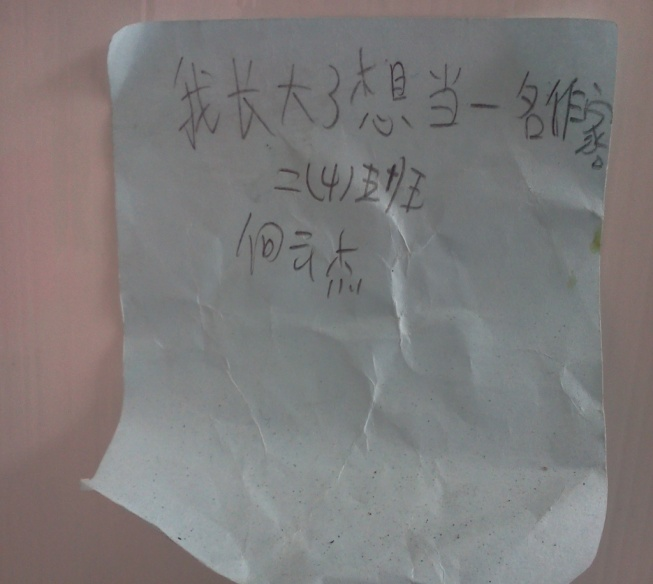 我长大了想当一名作家。
二(4)班
何云杰